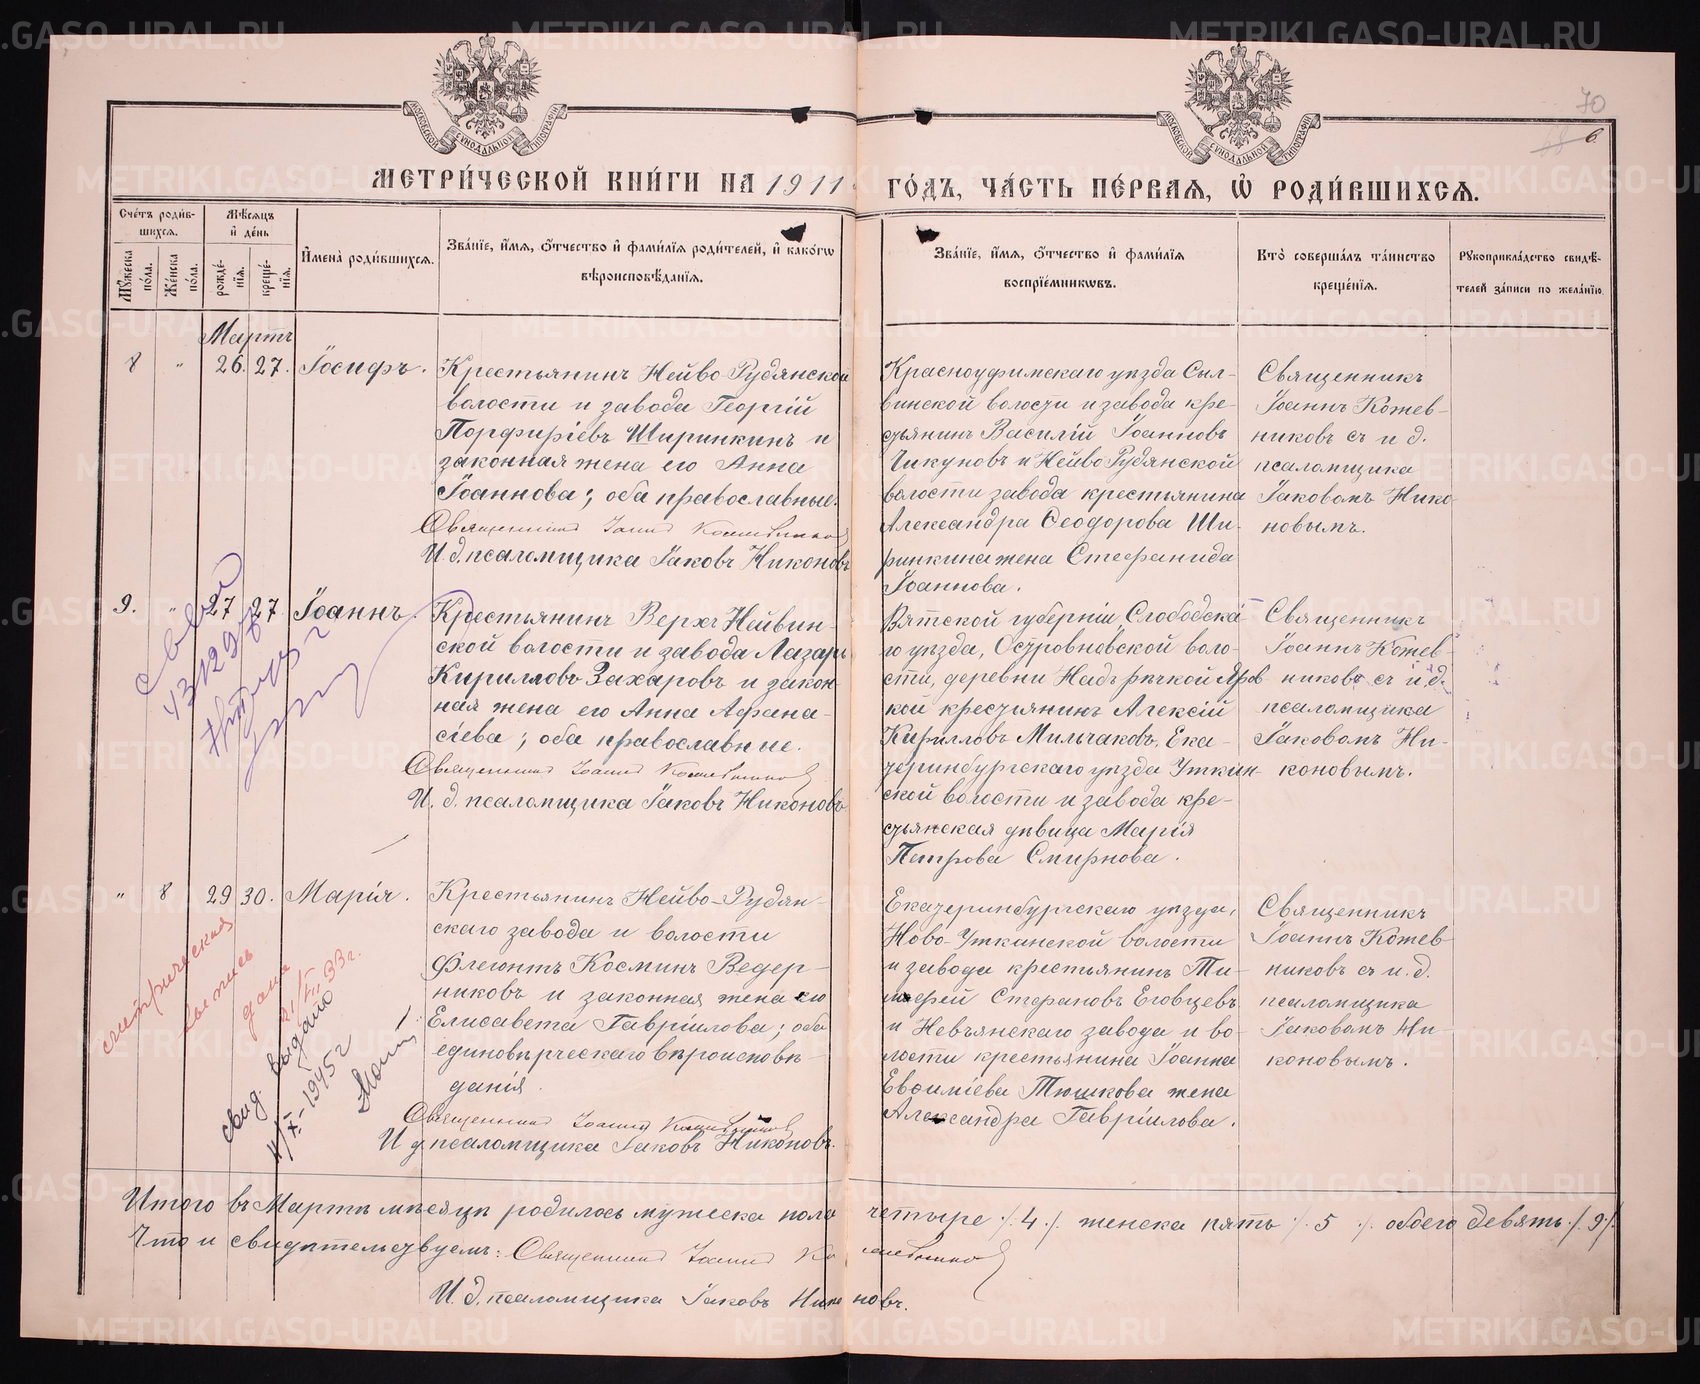 МОСКОВСКОЙ СѴНОДАЛЬНОЙ ТИПОГРАФІИ
МОСКОВСКОЙ СѴНОДАЛЬНОЙ ТИПОГРАФІИ
70
6
МЕТРИ́ЧЕСКОЙ КНИ́ГИ НА 1911 ГО́ДЪ, ЧА́СТЬ ПЕ́РВАЯ, Ѡ҆ РОДИ́ВШИХСЯ.
Сче́тъ роди́вшихся.
Му́жеска по́ла.
Же́нска по́ла.
Мѣ́сяцъ и҆ де́нь
рожде́нїя.
креще́нїя.
И҆мена̀ роди́вшихся.
Зва́нїе, и҆́мя, ѻ҆́тчество и҆ фами́лїя роди́телей, и҆ како́гѡ вѣроисповѣ́данїя.
Зва́нїе, и҆́мя, ѻ҆́тчество и҆ фами́лїя воспрїе́мникѡвъ.
Кто̀ соверша́лъ та́инство креще́нїя.
Рꙋкоприкла́дство свидѣ́телей за́писи по жела́нїю.
Мартъ
8 " 26. 27. Іосифъ.
Крестьянинъ Нейво-Рудянской
волости и завода Георгій
Порфиріевъ Ширинкинъ и
законная жена его Анна
Іоаннова; оба православные.
Священникъ Іоаннъ Кожевниковъ
И. д. псаломщика Іаковъ Никоновъ
Красноуфимскаго уѣзда Сыл-
винской волости и завода кре-
стьянинъ Василій Іоанновъ
Чикуновъ и Нейво Рудянской
волости завода крестьянина
Александра Ѳеодорова Ши-
ринкина жена Стефанида
Іоаннова.
Священникъ
Іоаннъ Кожев-
никовъ съ и д.
псаломщика
Іаковомъ Нико-
новымъ.
9. " 27 27 Іоаннъ.
Крестьянинъ Верхъ Нейвин-
ской волости и завода Лазарь
Кирилловъ Захаровъ и закон-
ная жена его Анна Аѳана-
сіева; оба православные.
Священникъ Іоаннъ Кожевниковъ
И. д. псаломщика Іаковъ Никоновъ
Вятской губерніи, Слободска-
го уѣзда, Островновской воло-
сти, деревни Надъ рѣчкой Яров
кой крестьянинъ Алексій
Кирилловъ Мильчаковъ, Ека-
теринбургскаго уѣзда Уткин-
ской волости и завода кре-
стьянская дѣвица Марія
Петрова Смирнова.
Священникъ
Іоаннъ Кожев-
никовъ съ и.д.
псаломщика
Іаковомъ Ни-
коновымъ.
" 8 29 30. Марія.
Крестьянинъ Нейво-Рудян-
скаго завода и волости
Флегонтъ Косминъ Ведер-
никовъ и законная жена его
Елисавета Гавріилова; оба
единовѣрческаго вѣроисповѣ-
данія.
Священникъ Іоаннъ Кожевниковъ
И д псаломщика Іаковъ Никоновъ.
метрическая
выпись
дана
33 г.
свид выдано
11/X-1945 г
Екатеринбургскаго уѣзда,
Ново-Уткинской волости
и завода крестьянинъ Ти-
моѳей Стефановъ Еговцевъ
и Невьянскаго завода и во-
лости крестьянина Іоанна
Евѳиміева Тюшкова жена
Александра Гавріилова.
Священникъ
Іоаннъ Кожев-
никовъ съ и.д.
псаломщика
Іаковомъ Ни-
коновымъ.
Итого въ Мартѣ мѣсяцѣ родилось мужеска пола четыре ./. 4 ./. женска пять ./. 5 ./. обоего девять ./. 9 ./.
Что и свидѣтельствуемъ: Священникъ Іоаннъ Кожевниковъ
И. д. псаломщика Іаковъ Никоновъ.
METRIKI.GASO-URAL.RU